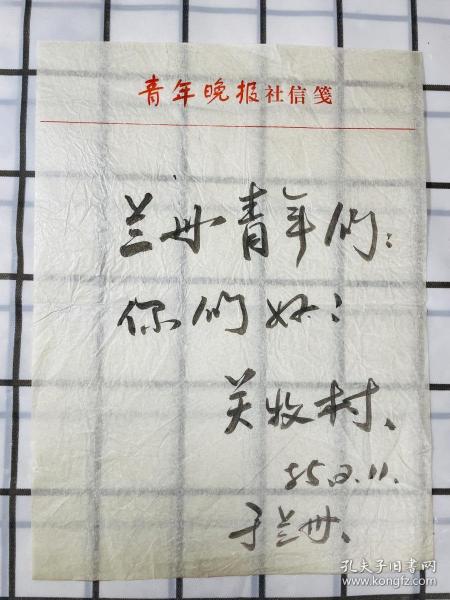 青年晚报社信笺
兰州青年们:
你们好!
关牧村、
85.2.11.
于兰州、
孔夫子旧书网
www.kongfz.com